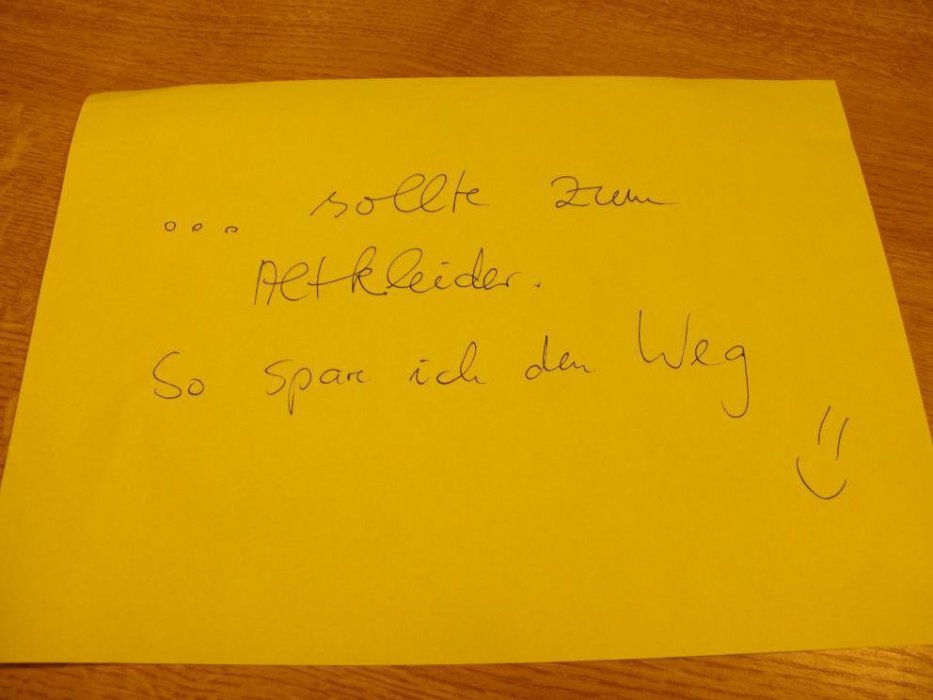 ... sollte zum
Altkleider.
So spare ich den Weg